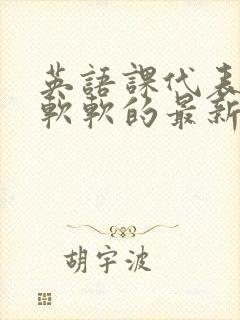 英語課代表
軟軟的最新
胡宇波